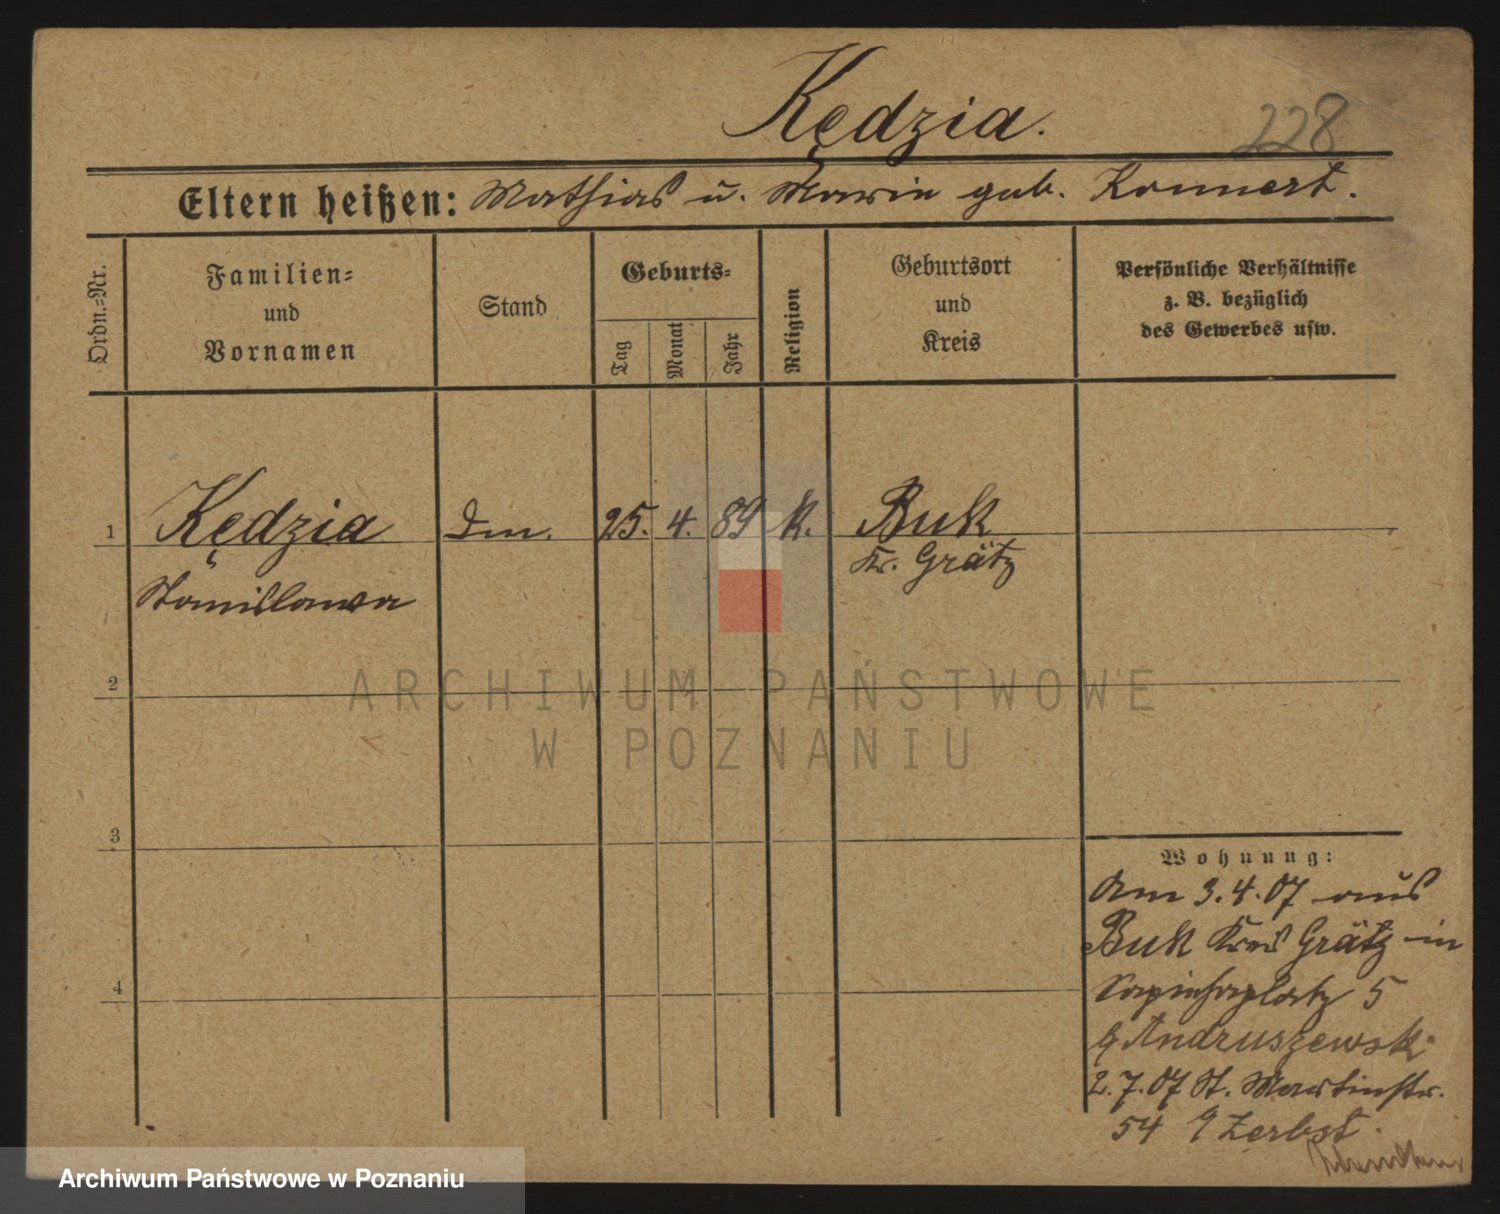 Kędzia.
228
Eltern heißen: Mathias u. Marie geb. Konnert.
Ordn.=Nr.
Familien=
und
Vornamen
Stand
Geburts=
Tag
Monat
Jahr
Religion
Geburtsort
und
Kreis
Persönliche Verhältnisse
z. B. bezüglich
des Gewerbes usw.
1 Kędzia Dm. 25. 4. 89 K. Buk
Stanislawa
Kr. Grätz
2
3
4
Wohnung:
Am 3.4.07 aus
Buk Kreis Grätz in
Sapiehaplatz 5
b/ Andruszewski
2.7.07 St. Martinstr.
54 b/ Zerbst.
ARCHIWUM PAŃSTWOWE
W POZNANIU
Archiwum Państwowe w Poznaniu